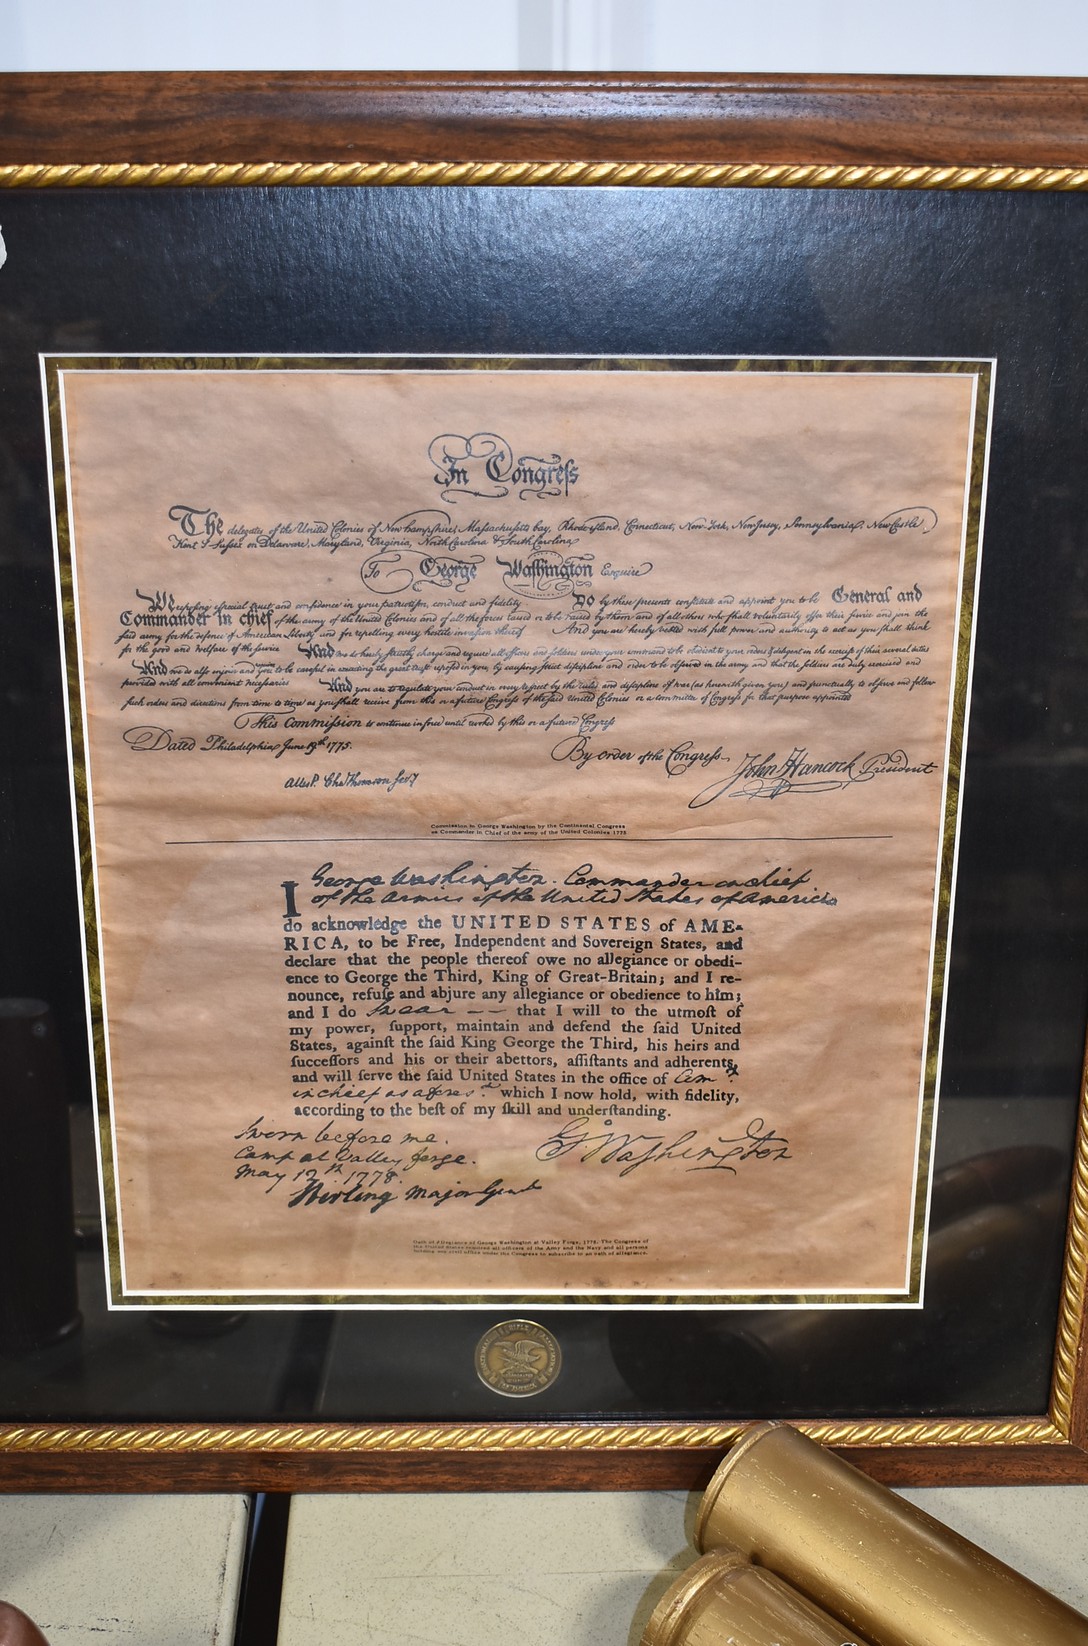 In Congreſs
The delegates of the United Colonies of New hampshire, Massachusetts bay, Rhode island, Connecticut, New-York, New Jersey, Pennsylvania, New Castle
Kent & Sussex on Delaware, Maryland, Virginia, North Carolina & South Carolina
To George Waſhington Esquire
We reposing especial trust and confidence in your patriotism, conduct and fidelity Do by these presents constitute and appoint you to be General and
Commander in chief of the army of the United Colonies and of all the forces raised or to be raised by them and of all others who shall voluntarily offer their service and join the
said army for the defence of American Liberty and for repelling every hostile invasion thereof And you are hereby vested with full power and authority to act as you shall think
for the good and welfare of the service And we do hereby strictly charge and require all officers and soldiers under your command to be obedient to your orders & diligent in the exercise of their several duties
And we do also enjoin and require you to be careful in executing the great trust reposed in you, by causing strict discipline and order to be observed in the army and that the soldiers are duly exercised and
provided with all convenient necessaries And you are to regulate your conduct in every respect by the rules and discipline of war (as herewith given you) and punctually to observe and follow
such orders and directions from time to time as you shall receive from this or a future Congress of the said United Colonies or a committee of Congress for that purpose appointed
This Commission to continue in force until revoked by this or a future Congress
Dated Philadelphia June 19th 1775.
By order of the Congress
John Hancock President
Attest. Cha Thomson Secy
Commission to George Washington by the Continental Congress
as Commander in Chief of the army of the United Colonies 1775
I George Washington. Commander in chief
of the Armies of the United States of America
do acknowledge the UNITED STATES of AME-
RICA, to be Free, Independent and Sovereign States, and
declare that the people thereof owe no allegiance or obedi-
ence to George the Third, King of Great-Britain; and I re-
nounce, refuſe and abjure any allegiance or obedience to him;
and I do swear -- that I will to the utmoſt of
my power, ſupport, maintain and defend the ſaid United
States, againſt the ſaid King George the Third, his heirs and
ſucceſſors and his or their abettors, aſſiſtants and adherents,
and will ſerve the ſaid United States in the office of Com r.
in chief as afores d. which I now hold, with fidelity,
according to the beſt of my ſkill and underſtanding.
Sworn before me.
Camp at Valley forge.
May 12th 1778.
Stirling Major Genl
G Washington
Oath of Allegiance of George Washington at Valley Forge, 1778. The Congress of
the United States required all officers of the Army and the Navy and all persons
holding any civil office under the Congress to subscribe to an oath of allegiance.